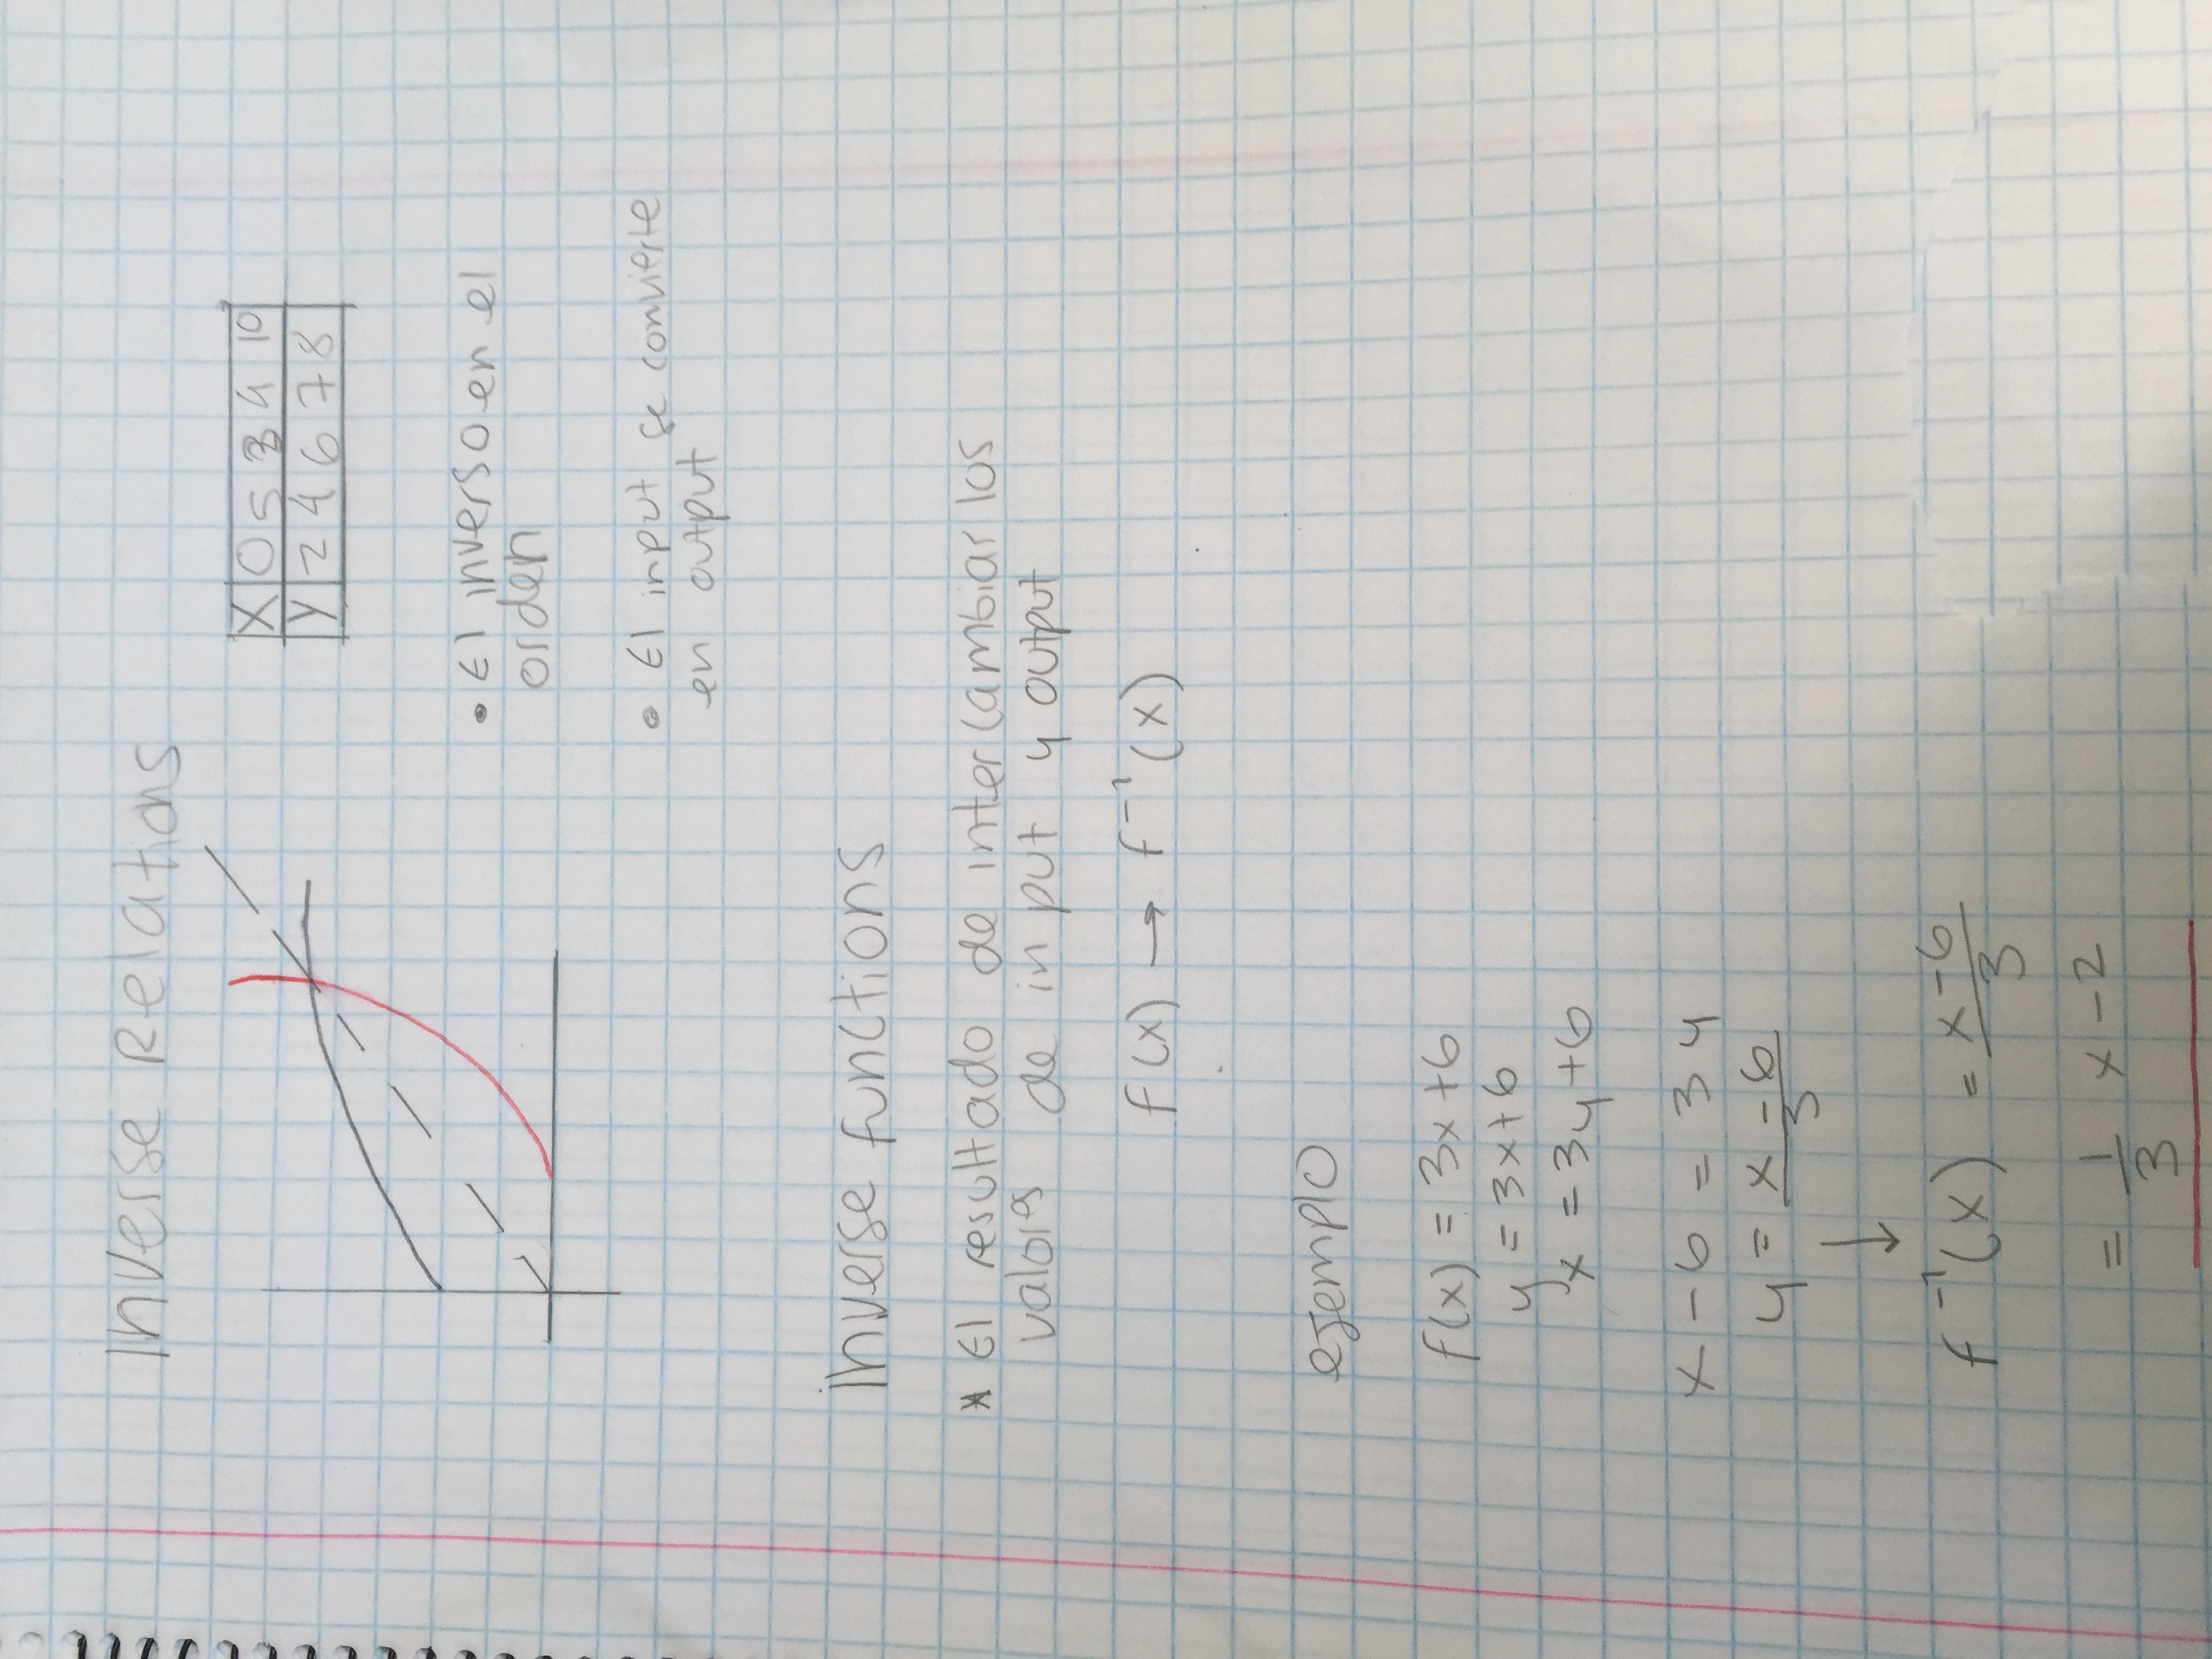 Inverse Relations
X 0 5 3 4 10
Y 2 4 6 7 8
• El inverso en el
orden
• El input se convierte
en output
Inverse functions
* El resultado de intercambiar los
valores de input y output
f(x) → f⁻¹(x)
ejemplo
f(x) = 3x+6
y = 3x+6
x = 3y+6
x - 6 = 3y
y = x-6/3
↓
f⁻¹(x) = x-6/3
= 1/3 x - 2